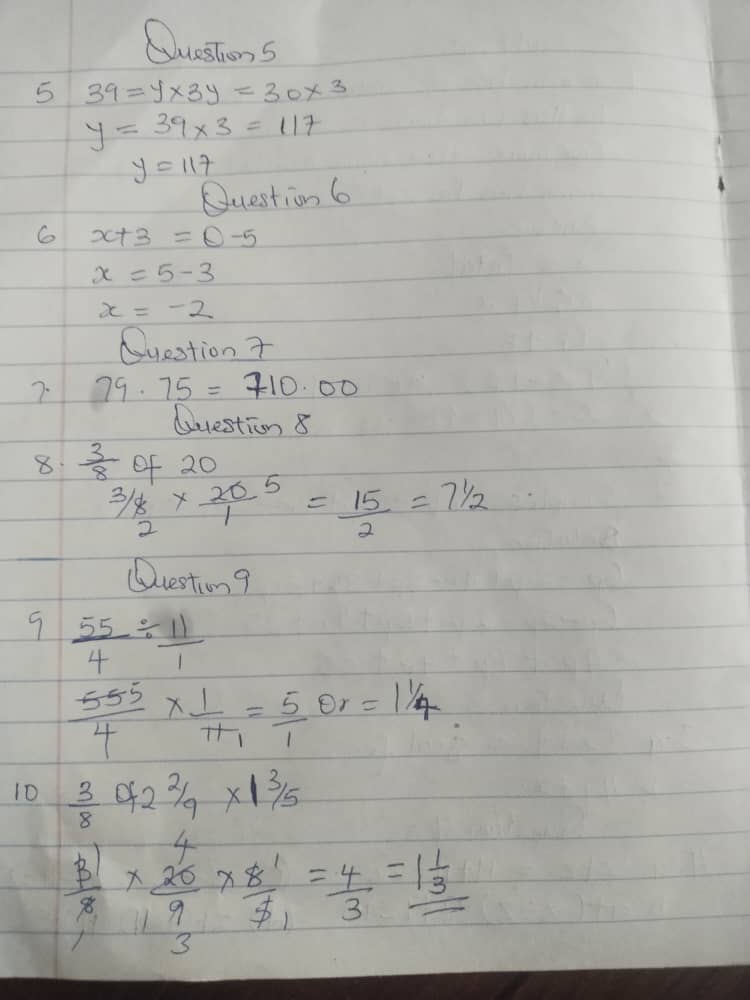 Question 5
5 39 = y × 3y = 30 × 3
y = 39 × 3 = 117
y = 117
Question 6
6 x + 3 = 0 - 5
x = 5 - 3
x = -2
Question 7
7. 79.75 = 710.00
Question 8
8. 3/8 Of 20
3/8 2 × 20 5/1 = 15/2 = 7 1/2
Question 9
9 55/4 ÷ 11/1
55 5/4 × 1/11 1 = 5/1 Or = 1 1/4
10 3/8 Of 2 2/9 × 1 3/5
3 1/8 1 × 20 4/9 3 × 8 1/5 1 = 4/3 = 1 1/3